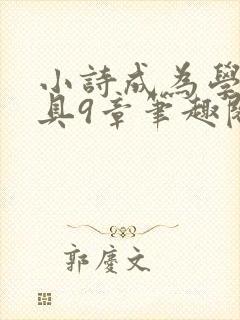 小詩成為學
具9章筆趣閣
郭慶文